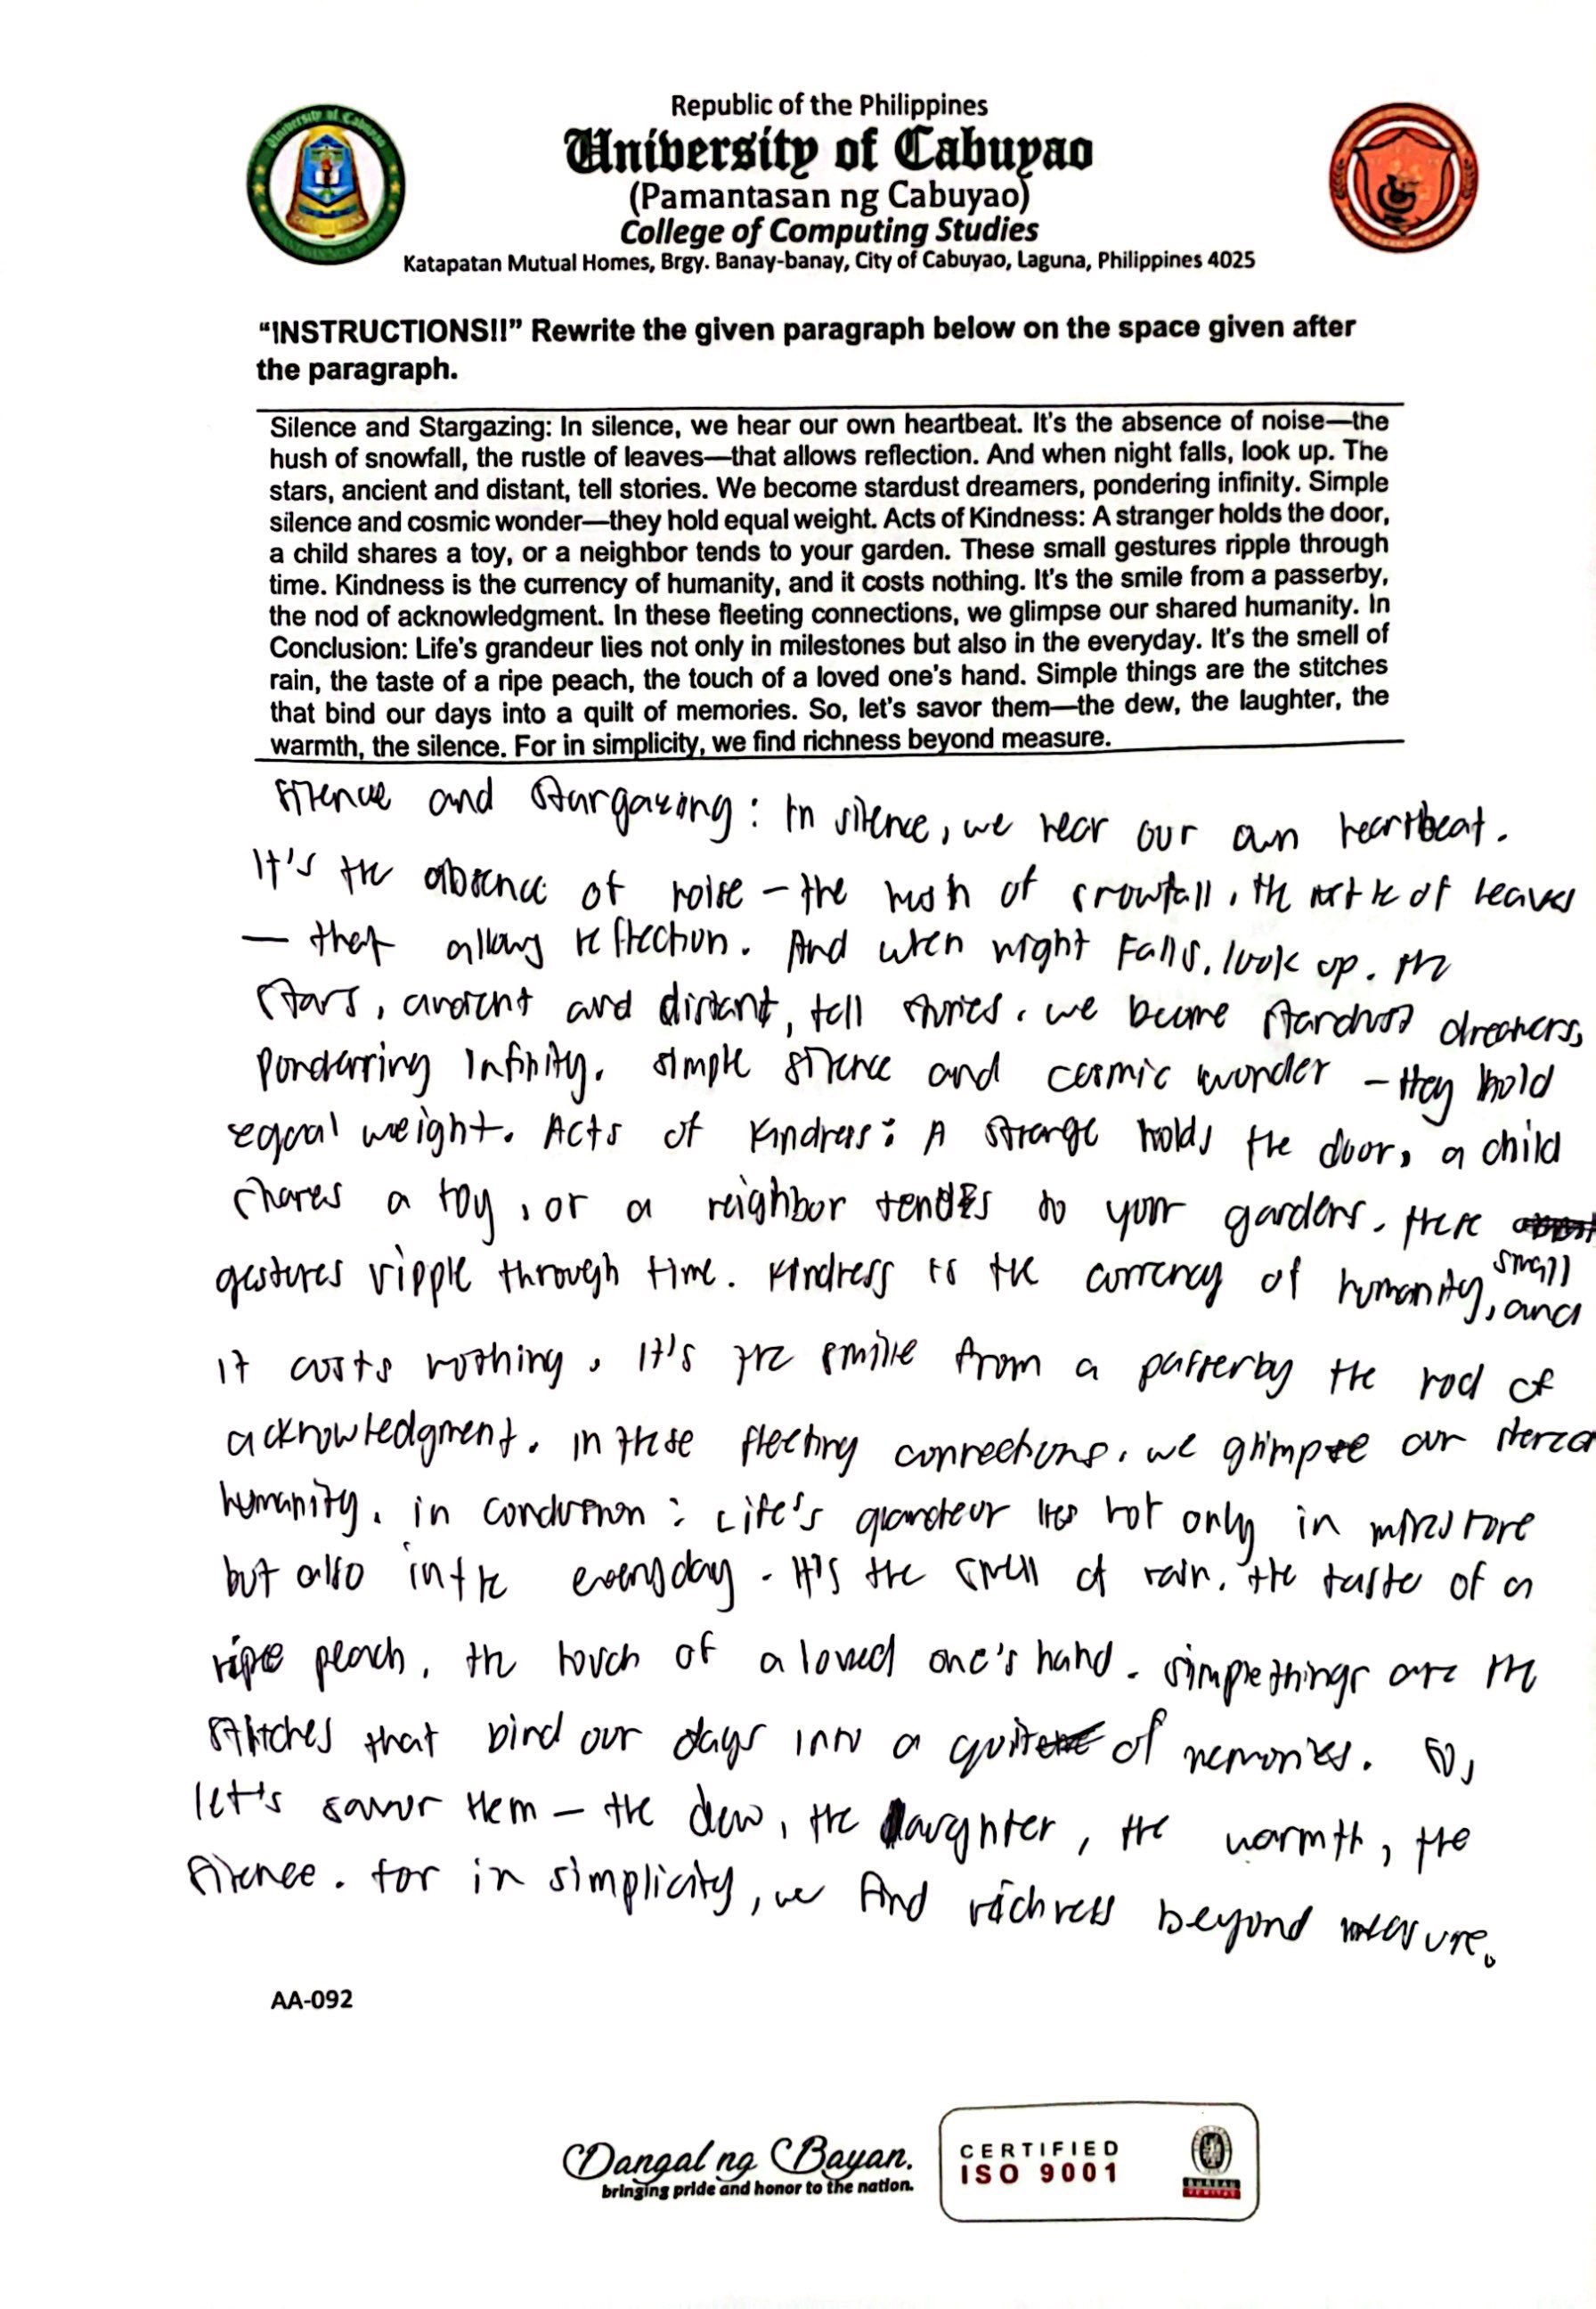 Republic of the Philippines
University of Cabuyao
(Pamantasan ng Cabuyao)
College of Computing Studies
Katapatan Mutual Homes, Brgy. Banay-banay, City of Cabuyao, Laguna, Philippines 4025
“INSTRUCTIONS!!” Rewrite the given paragraph below on the space given after
the paragraph.
Silence and Stargazing: In silence, we hear our own heartbeat. It's the absence of noise—the
hush of snowfall, the rustle of leaves—that allows reflection. And when night falls, look up. The
stars, ancient and distant, tell stories. We become stardust dreamers, pondering infinity. Simple
silence and cosmic wonder—they hold equal weight. Acts of Kindness: A stranger holds the door,
a child shares a toy, or a neighbor tends to your garden. These small gestures ripple through
time. Kindness is the currency of humanity, and it costs nothing. It's the smile from a passerby,
the nod of acknowledgment. In these fleeting connections, we glimpse our shared humanity. In
Conclusion: Life's grandeur lies not only in milestones but also in the everyday. It's the smell of
rain, the taste of a ripe peach, the touch of a loved one's hand. Simple things are the stitches
that bind our days into a quilt of memories. So, let's savor them—the dew, the laughter, the
warmth, the silence. For in simplicity, we find richness beyond measure.
Silence and Stargazing: In silence, we hear our own heartbeat.
It's the absence of noise - the hush of snowfall, the rustle of leaves
— that allows reflection. And when night falls, look up. The
stars, ancient and distant, tell stories. we become stardust dreamers,
Ponderring Infinity. simple silence and cosmic wonder - they hold
equal weight. Acts of Kindness: A strange holds the door, a child
shares a toy, or a neighbor tends to your gardens. these
gestures ripple through time. Kindness is the currency of humanity, small and
it costs nothing. It's the smile from a passerby the nod of
acknowledgment. in these fleeting connections, we glimpse our shared
humanity. in conclusion: Life's grandeur lies not only in milestone
but also in the everyday. It's the smell of rain, the taste of a
ripe peach, the touch of a loved one's hand. simple things are the
stitches that bind our days into a of memories. So,
let's savor them - the dew, the laughter, the warmth, the
silence. for in simplicity, we find richness beyond measure.
AA-092
Dangal ng Bayan.
bringing pride and honor to the nation.
CERTIFIED
ISO 9001
BUREAU
VERITAS